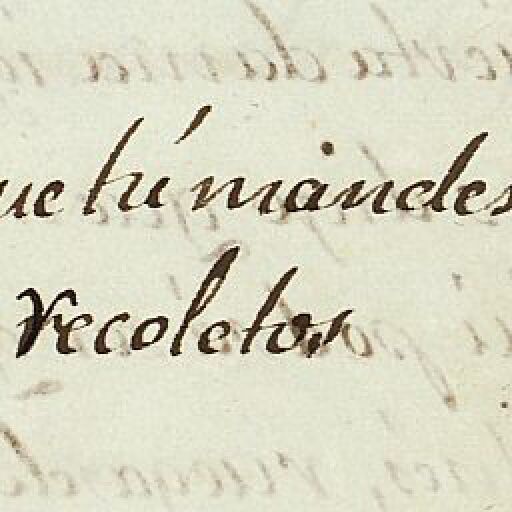 ue tú mandes
recoletos